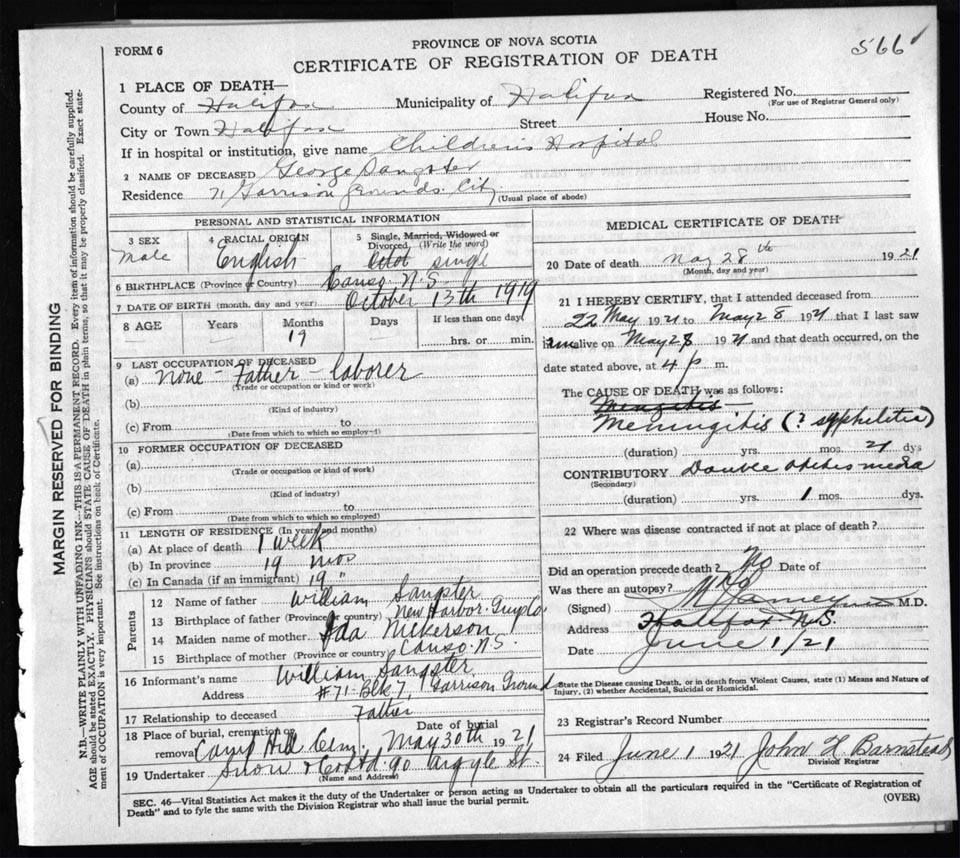 FORM 6
PROVINCE OF NOVA SCOTIA
566
CERTIFICATE OF REGISTRATION OF DEATH
1 PLACE OF DEATH—
County of Halifax Municipality of Halifax Registered No.
(For use of Registrar General only)
City or Town Halifax Street House No.
If in hospital or institution, give name Children's Hospital
2 NAME OF DECEASED George Sangster
Residence 71 Garrison Grounds City
(Usual place of abode)
PERSONAL AND STATISTICAL INFORMATION
3 SEX
Male
4 RACIAL ORIGIN
English
5 Single, Married, Widowed or
Divorced, (Write the word)
single
6 BIRTHPLACE (Province or Country) Canso N.S
7 DATE OF BIRTH (month, day and year) October 13th 1919
8 AGE Years Months Days If less than one day
19
hrs. or min.
9 LAST OCCUPATION OF DECEASED
(a) None - Father - laborer
(Trade or occupation or kind of work)
(b)
(Kind of industry)
(c) From to
(Date from which to which so employed)
10 FORMER OCCUPATION OF DECEASED
(a)
(Trade or occupation or kind of work)
(b)
(Kind of industry)
(c) From to
(Date from which to which so employed)
11 LENGTH OF RESIDENCE (In years and months)
(a) At place of death 1 week
(b) In province 19 mos
(c) In Canada (if an immigrant) 19 "
Parents
12 Name of father William Sangster
13 Birthplace of father (Province or country) New Harbor Guys Co.
14 Maiden name of mother Ida Nickerson
15 Birthplace of mother (Province or country) Canso N.S
16 Informant's name William Sangster
Address #71 Blk 7, Garrison Ground
17 Relationship to deceased Father
18 Place of burial, cremation or Date of burial
removal Camp Hill Cem. May 30th 1921
19 Undertaker Snow & Co Ltd. 90 Argyle St.
(Name and Address)
MEDICAL CERTIFICATE OF DEATH
20 Date of death May 28th 1921
(Month, day and year)
21 I HEREBY CERTIFY, that I attended deceased from
22 May 1921 to May 28 1921 that I last saw
him alive on May 28 1921 and that death occurred, on the
date stated above, at 4 p m.
The CAUSE OF DEATH was as follows:
Mengitis
Meningitis (? syphilitic)
(duration) yrs. mos. 21 dys
CONTRIBUTORY Double otitis media
(Secondary)
(duration) yrs. 1 mos. dys.
22 Where was disease contracted if not at place of death?
Did an operation precede death? No Date of
Was there an autopsy? No
(Signed) M.D.
Address Halifax N.S.
Date June 1/21
State the Disease causing Death, or in death from Violent Causes, state (1) Means and Nature of
Injury, (2) whether Accidental, Suicidal or Homicidal.
23 Registrar's Record Number
24 Filed June 1 1921 John H Barnstead
Division Registrar
SEC. 46—Vital Statistics Act makes it the duty of the Undertaker or person acting as Undertaker to obtain all the particulars required in the "Certificate of Registration of
Death" and to fyle the same with the Division Registrar who shall issue the burial permit.
(OVER)
MARGIN RESERVED FOR BINDING
N.B.—WRITE PLAINLY WITH UNFADING INK—THIS IS A PERMANENT RECORD. Every item of information should be carefully supplied.
AGE should be stated EXACTLY. PHYSICIANS should STATE CAUSE OF DEATH in plain terms, so that it may be properly classified. Exact state-
ment of OCCUPATION is very important. See instructions on back of Certificate.